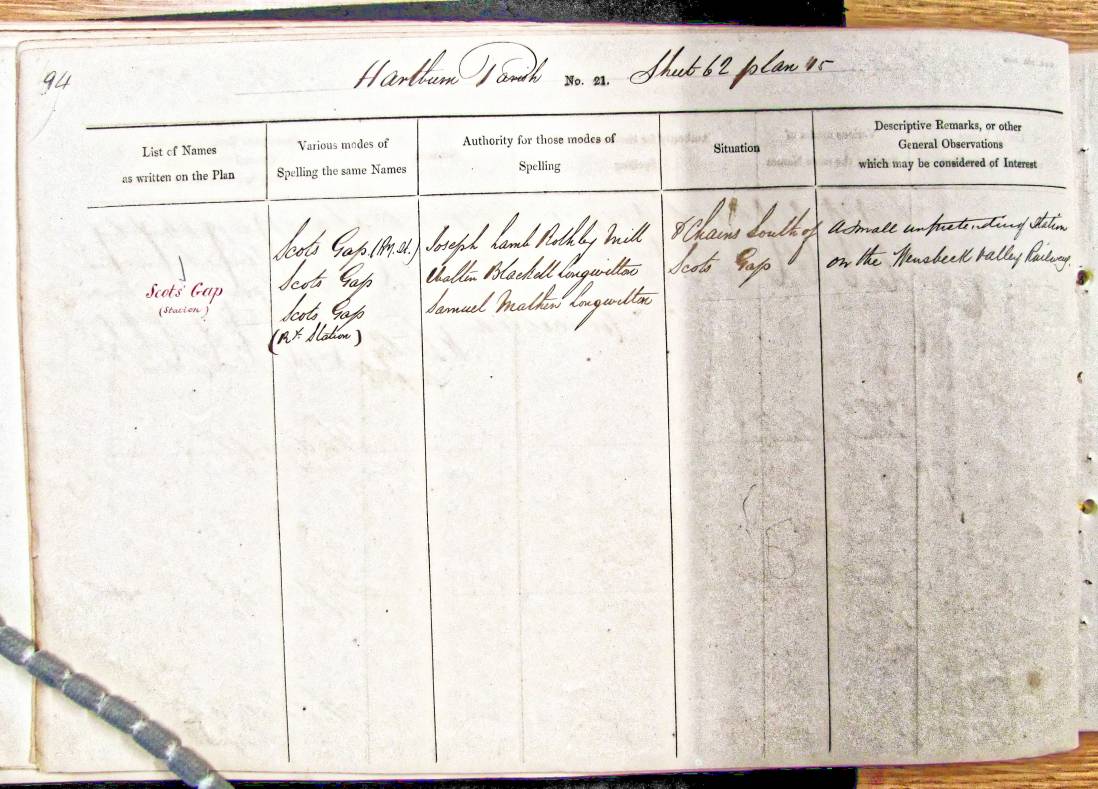 94
Hartburn Parish No. 21. Sheet 62 plan 15
List of Names
as written on the Plan
Various modes of
Spelling the same Names
Authority for those modes of
Spelling
Situation
Descriptive Remarks, or other
General Observations
which may be considered of Interest
Scots' Gap
(Station)
Scots Gap (Ry. St.)
Scots Gap
Scots Gap
(Ry. Station)
Joseph Lamb Rothley Mill
Walter Blackell Longwitton
Samuel Mathen Longwitton
8 Chains South of
Scots Gap
A small unpretending Station
on the Wensbeck Valley Railway.